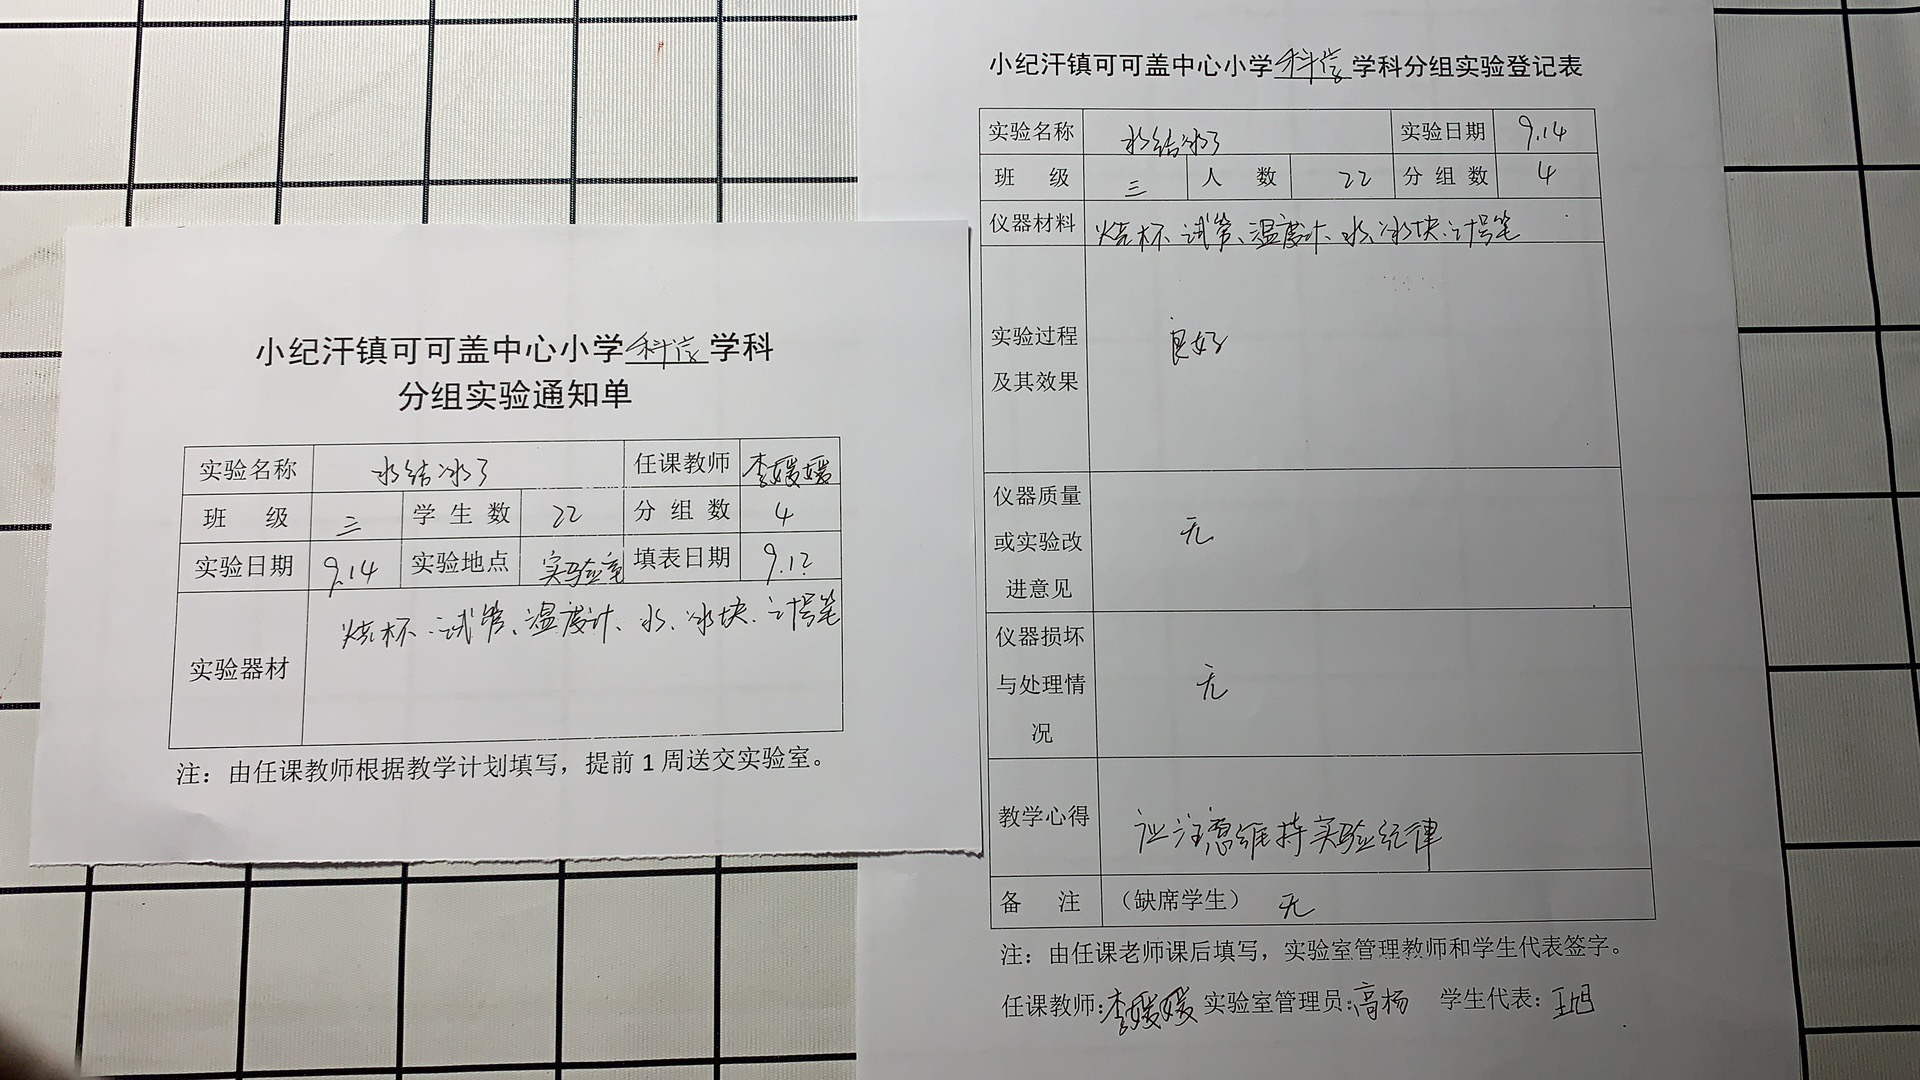 小纪汗镇可可盖中心小学科学学科
分组实验通知单
实验名称 水结冰了 任课教师 李媛媛
班 级 三 学生数 22 分组数 4
实验日期 9.14 实验地点 实验室 填表日期 9.12
实验器材 烧杯、试管、温度计、水、冰块、记号笔
注：由任课教师根据教学计划填写，提前1周送交实验室。
小纪汗镇可可盖中心小学科学学科分组实验登记表
实验名称 水结冰了 实验日期 9.14
班 级 三 人 数 22 分组数 4
仪器材料 烧杯、试管、温度计、水、冰块、记号笔
实验过程
及其效果
良好
仪器质量
或实验改
进意见
无
仪器损坏
与处理情
况
无
教学心得 注意维持实验纪律
备 注 （缺席学生） 无
注：由任课老师课后填写，实验室管理教师和学生代表签字。
任课教师：李媛媛 实验室管理员：高杨 学生代表：王旭